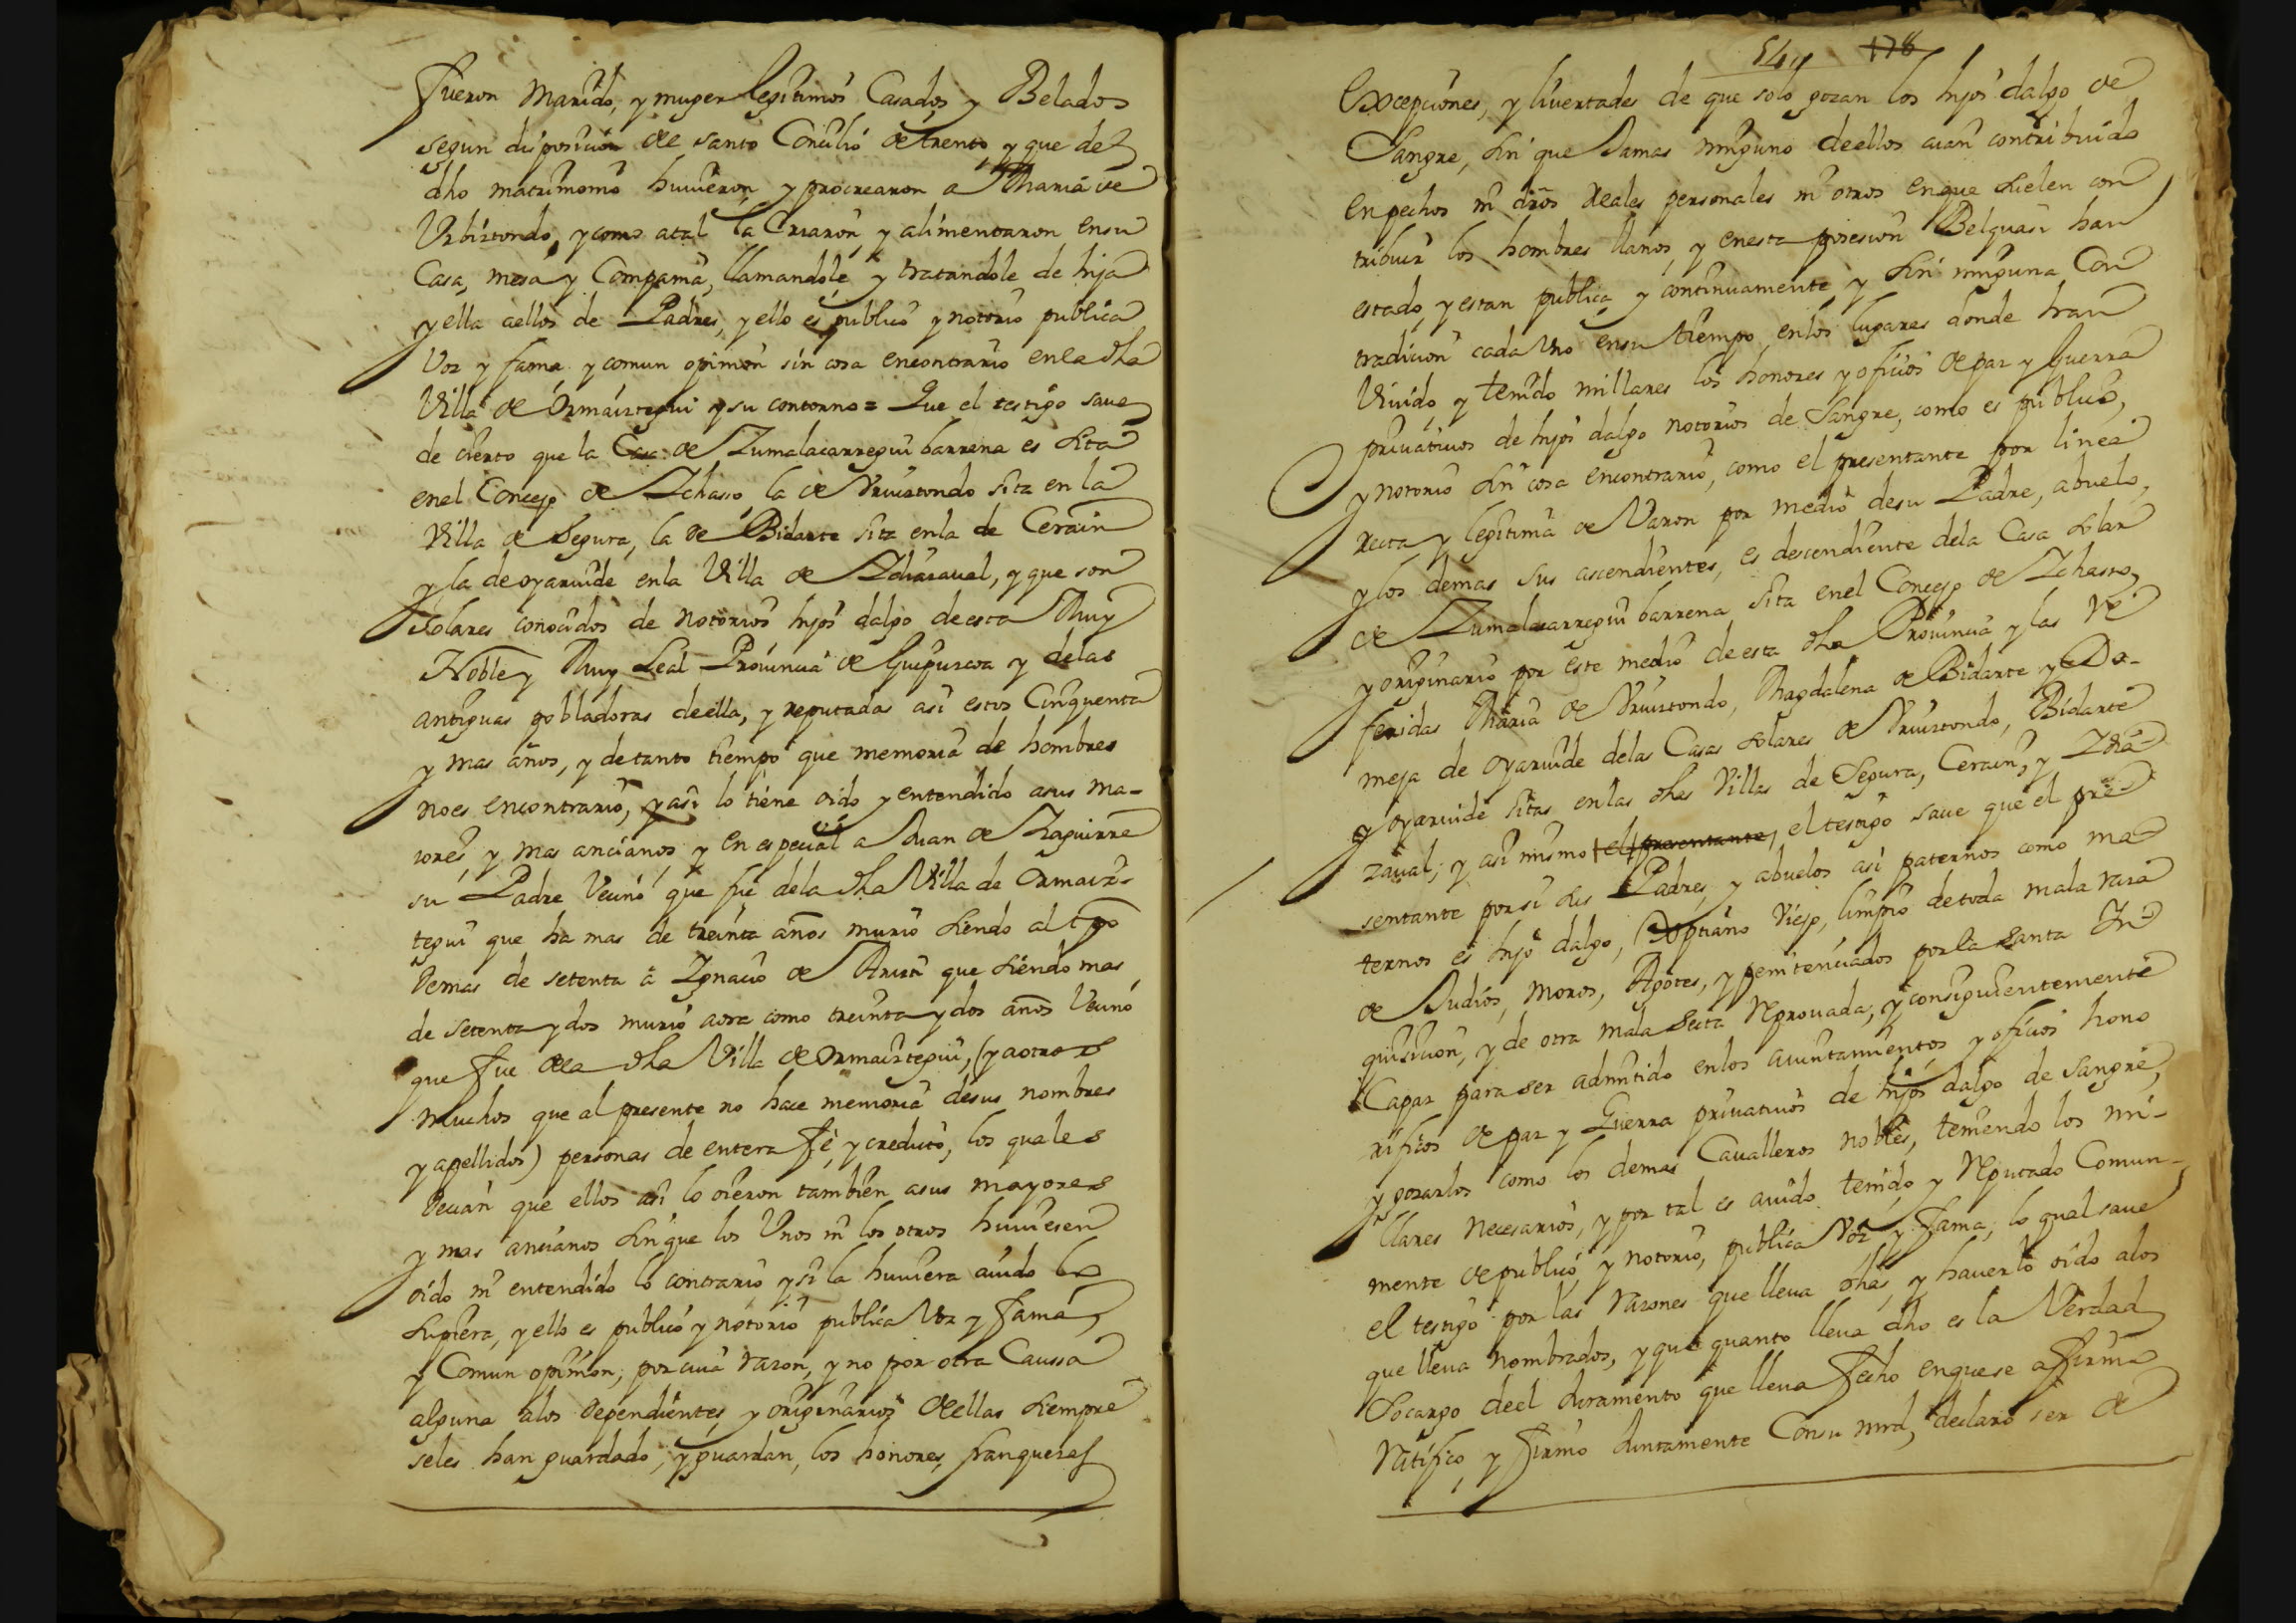 fueron Marido, y muger legitimos Casados, y Belados
segun disposicion de santo Concilio de trento, y que de
dho matrimonio huuieron, y procrearon a Maria de
Vrbiztondo, y como atal la Criaron, y alimentaron ensu
Casa, mesa y Compania, llamandole, y tratandole de hija
y ella aellos de Padres, y ello es publico y notorio publica
Voz y fama, y comun opinion sin cosa encontrario enla dha
Villa de Ormaiztegui y su contorno = Que el testigo saue
de cierto que la Casa de Zumalacarregui barrena es sita
enel Concejo de Ichasso, la de Vruiztondo sita en la
Villa de Segura, la de Bidarte sita enla de Cerain
y la de oyaruide enla Villa de Idiazaual, y que son
Solares conocidos de notorios hijos dalgo de esta Muy
Noble y Muy Leal Prouincia de Guipuzcoa y delas
antiguas pobladoras deella, y reputadas asi estos Cinquenta
y mas años, y detanto tiempo que memoria de hombres
noes encontrario, y asi lo tiene oido y entendido asus ma-
iores, y mas ancianos, y en especial a Juan de Izaguirre
su Padre Vecino que fue dela dha Villa de Ormaiz-
tegui que ha mas de treinta años murio siendo al tpo
demas de setenta a Ygnacio de Aruiti que siendo mas
de setenta y dos murio aora como treinta y dos años Vecino
que fue dela dha Villa de Ormaiztegui, (y aotros
muchos que al presente no hace memoria desus nombres
y apellidos) personas de entera fe, y credito, los quales
decian que ellos asi lo oieron tambien asus mayores
y mas ancianos sinque los Vnos ni los otros huuiesen
oido ni entendido lo contrario y si la huuiera auido lo
supiera, y ello es publico y notorio publica Voz y fama,
y Comun opinion, por cuia razon, y no por otra Caussa
alguna alos dependientes, y originarios dellas siempre
seles han guardado, y guardan, los honores, franquezas
54 178
Excepciones, y liuertades de que solo gozan los hijos dalgo de
Sangre, sin que Jamas ninguno deellos aian contribuido
en pechos ni dros Reales personales ni otros enque suelen con
tribuir los hombres llanos, y enesta posesion Belquasi han
estado, y estan publica, y continuamente y sin ninguna Con
tradicion cada Vno ensu tiempo enlos lugares donde han
Viuido y tenido millares los honores y oficios de paz y Guerra
priuatiuos de hijos dalgo notorios de Sangre, como es publico,
y notorio sin cosa encontrario, como el presentante por linea
recta y legitima de Varon por medio desu Padre, abuelo,
y los demas sus ascendientes, es descendiente dela Casa solar
de Zumalacarregui barrena sita enel Concejo de Ichasso,
y originario por este medio deesta dha Prouincia y las Re
feridas Maria de Vruiztondo, Magdalena de Bidarte y Do-
meja de oyaruide delas Casas solares de Vruiztondo, Bidarte
y oyaruide sitas enlas dhas Villas de Segura, Cerain, y Idia-
zaual; y asi mismo el presentante, el testigo saue que el pre-
sentante porsi sus Padres, y abuelos asi paternos como ma
ternos es hijo dalgo, Xptiano Viejo, limpio detoda mala raza
de Judios, Moros, Agotes, y penitenciados por la santa In
quisicion, y de otra mala secta Reprouada, y consiguientemente
Capaz para ser admitido enlos aiuntamientos, y oficios hono
rificos de paz y Guerra priuatiuos de hijos dalgo de sangre,
y gozarlos como los demas Caualleros nobles, teniendo los mi-
llares necesarios, y por tal es auido tenido, y Reputado Comun-
mente de publico, y notorio, publica Voz y fama, lo qual saue
el testigo por las razones que lleua dhas, y hauerlo oido alos
que lleua nombrados, y que quanto lleua dho es la Verdad
socargo deel Juramento que lleua fecho enquese affirma
Ratifico, y firmo Juntamente Consu mrd, declaro ser de